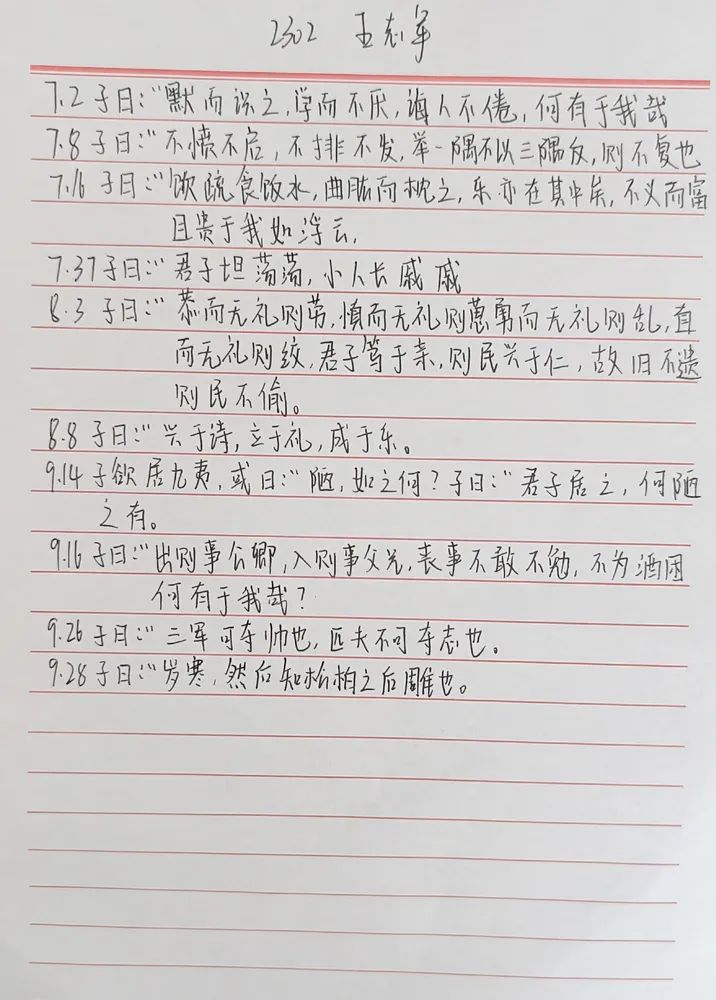 2302 王志军
7.2 子曰:"默而识之,学而不厌,诲人不倦,何有于我哉
7.8 子曰:"不愤不启,不排不发,举一隅不以三隅反,则不复也
7.16 子曰:"饮疏食饮水,曲肱而枕之,乐亦在其中矣,不义而富
且贵于我如浮云,
7.37 子曰:"君子坦荡荡,小人长戚戚
8.3 子曰:"恭而无礼则劳,慎而无礼则葸勇而无礼则乱,直
而无礼则绞,君子笃于亲,则民兴于仁,故旧不遗
则民不偷。
8.8 子曰:"兴于诗,立于礼,成于乐。
9.14 子欲居九夷,或曰:"陋,如之何?子曰:"君子居之,何陋
之有。
9.16 子曰:"出则事公卿,入则事父兄,丧事不敢不勉,不为酒困
何有于我哉?
9.26 子曰:"三军可夺帅也,匹夫不可夺志也。
9.28 子曰:"岁寒,然后知松柏之后雕也。